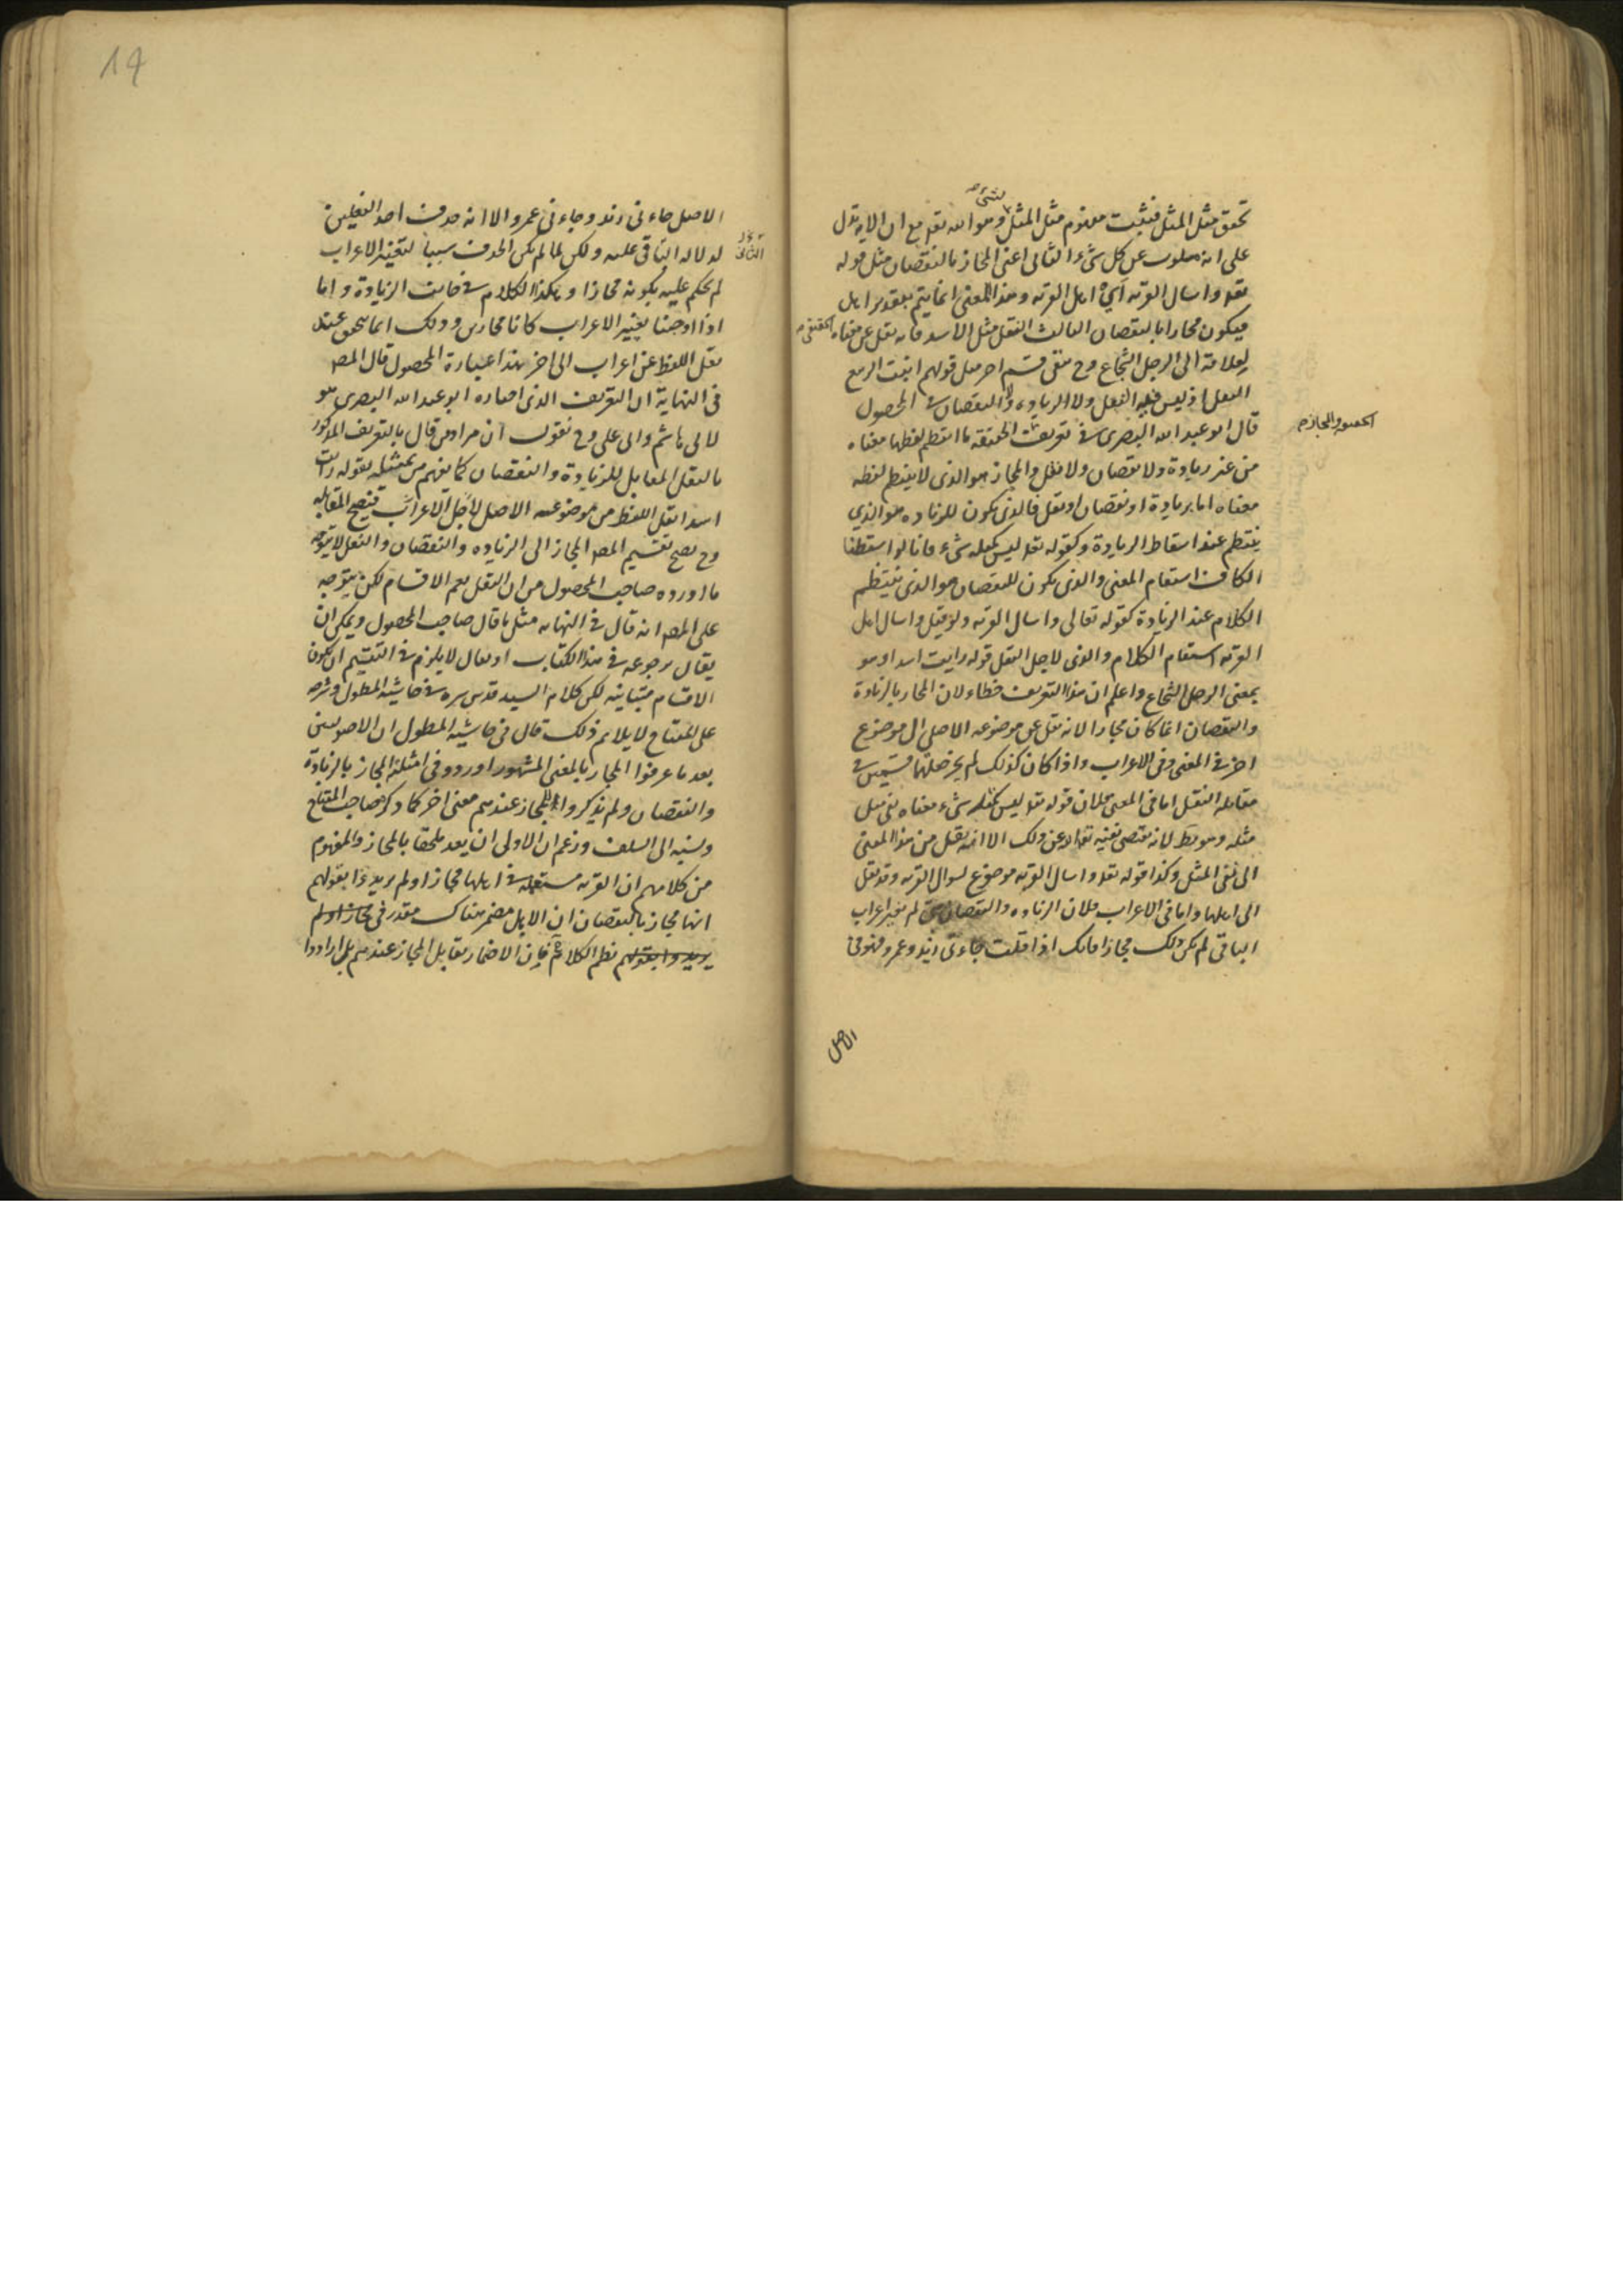 تحقق مثل المثل فيثبت مفهوم مثل المثل وهو الله تعه مع ان الاية تدل
على انه مسلوب عن كل شئ الثانى اعنى المجاز بالنقصان مثل قوله
تعه واسال القريه اى اهل القريه وهذا المعنى انما يتم بتقدير اهل
فيكون مجازا بالنقصان الثالث النقل مثل الاسد فانه نقل عن معناه الحقيقى
لعلاقة الى الرجل الشجاع وح بقى قسم اخر مثل قولهم انبت الربيع
البقل اذ ليس فيه النقل ولا الزياده ولا النقصان فى المحصول
قال ابو عبد الله البصرى فى تعريف الحقيقة ما انتظم لفظها معناه
الحقيقه والمجاز
من غير زيادة ولا نقصان ولا نقل والمجاز هو الذى لا ينتظم لفظه
معناه اما بزيادة او نقصان او نقل فالذى يكون للزياده هو الذي
ينتظم عند اسقاط الزيادة كقوله تعه ليس كمثله شئ فانا لو اسقطنا
الكاف استقام المعنى والذى يكون للنقصان هو الذى ينتظم
الكلام عند الزيادة كقوله تعالى واسال القريه ولو قيل واسال اهل
القريه استقام الكلام والذى لاجل النقل قوله رايت اسدا وهو
بمعنى الرجل الشجاع واعلم ان هذا التعريف خطاء لان المجاز بالزيادة
والنقصان انما كان مجازا لانه نقل عن موضوعه الاصلى الى موضوع
اخر فى المعنى وفى الاعراب واذا كان كذلك لم يجز جعلهما قسمين فى
مقابله النقل اما فى المعنى فلان قوله تعه ليس كمثله شئ معناه نفى مثل
مثله وهو بط لانه يقتضى نفيه تعه عن ذلك الا انه نقل من هذا المعنى
الى نفى المثل وكذا قوله تعه واسال القريه موضوع لسوال القريه وقد نقل
الى اهلها واما فى الاعراب فلان الزياده والنقصان متى لم يغير اعراب
الباقى لم يكن ذلك مجازا فانك اذا قلت جاءنى زيد وعمرو فهو فى
الاصل
الاصل جاءنى زيد وجاءنى عمرو الا انه حذف احد الفعلين
لدلاله الباقى عليه ولكن لما لم يكن الحذف سببا لتغيير الاعراب
لم يحكم عليه بكونه مجازا وهكذا الكلام فى جانب الزيادة واما
اذا اوجبا تغيير الاعراب كانا مجازين وذلك انما يتحقق عند
نقل اللفظ عن اعراب الى اخر هذا عبارة المحصول قال المصه
فى النهاية ان التعريف الذى اختاره ابو عبد الله البصرى هو
لابى هاشم وابى على وح نقول ان مراد من قال بالتعريف المذكور
بالنقل المقابل للزيادة والنقصان كما يفهم من تمثيله بقوله رايت
اسدا نقل اللفظ من موضوعه الاصل لا لاجل الاعراب فتصح المقابله
وح يصح تقسيم المصه المجاز الى الزياده والنقصان والنقل لا يتوجه
ما اورده صاحب المحصول من ان النقل يعم الاقسام لكن يتوجه
على المصه انه قال فى النهايه مثل ما قال صاحب المحصول ويمكن ان
يقال برجوعه فى هذا الكتاب او يقال لا يلزم فى التقسيم ان يكون
الاقسام متباينه لكن كلام السيد قدس سره فى حاشيه المطول وشرحه
على المفتاح لا يلائم ذلك قال فى حاشيه المطول ان الاصوليين
بعد ما عرفوا المجاز بالمعنى المشهور اوردوا فى امثلة المجاز بالزيادة
والنقصان ولم يذكروا ان للمجاز عندهم معنى اخر كما ذكره صاحب المفتاح
ونسبه الى السلف وزعم ان الاولى ان يعد ملحقا بالمجاز والمفهوم
من كلامهم ان القريه مستعمله فى اهلها مجازا ولم يريدوا بقولهم
انها مجاز بالنقصان ان الاهل مضمر هناك مقدر فى مجازا ولم
يريدوا بقولهم نظم الكلام فان الاضمار يقابل المجاز عندهم بل ارادوا